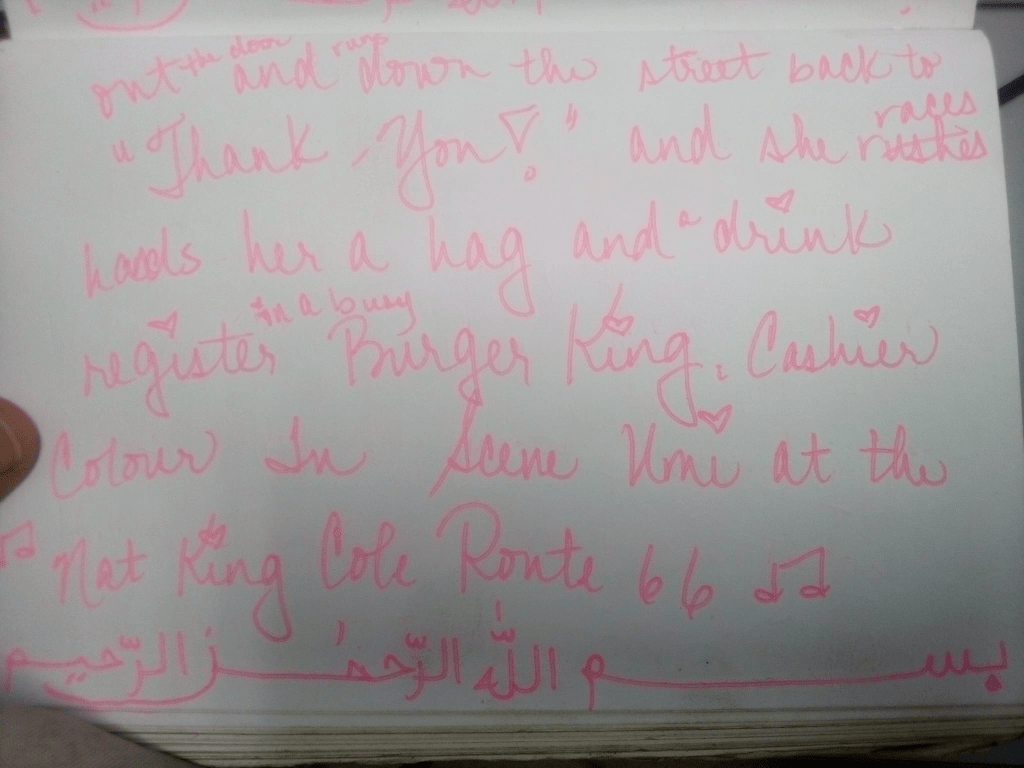 بسم الله الرّحمٰن الرّحيم
♫ Nat King Cole Route 66 ♫
Colour In Scene Umi at the
register in a busy Burger King. Cashier
hands her a hag and a drink
"Thank You!" and she races
out the door and runs down the street back to